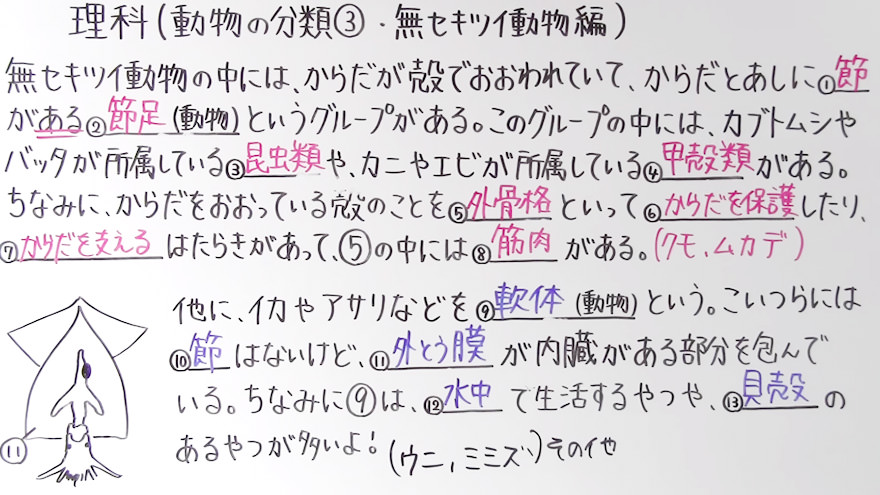 理科(動物の分類③・無セキツイ動物編)
無セキツイ動物の中には、からだが殻でおおわれていて、からだとあしに①節
がある②節足(動物)というグループがある。このグループの中には、カブトムシや
バッタが所属している③昆虫類や、カニやエビが所属している④甲殻類がある。
ちなみに、からだをおおっている殻のことを⑤外骨格といって⑥からだを保護したり、
⑦からだを支えるはたらきがあって、⑤の中には⑧筋肉がある。(クモ、ムカデ)
他に、イカやアサリなどを⑨軟体(動物)という。こいつらには
⑩節はないけど、⑪外とう膜が内臓がある部分を包んで
いる。ちなみに⑨は、⑫水中で生活するやつや、⑬貝殻の
あるやつが多いよ!(ウニ、ミミズ)その他
⑪